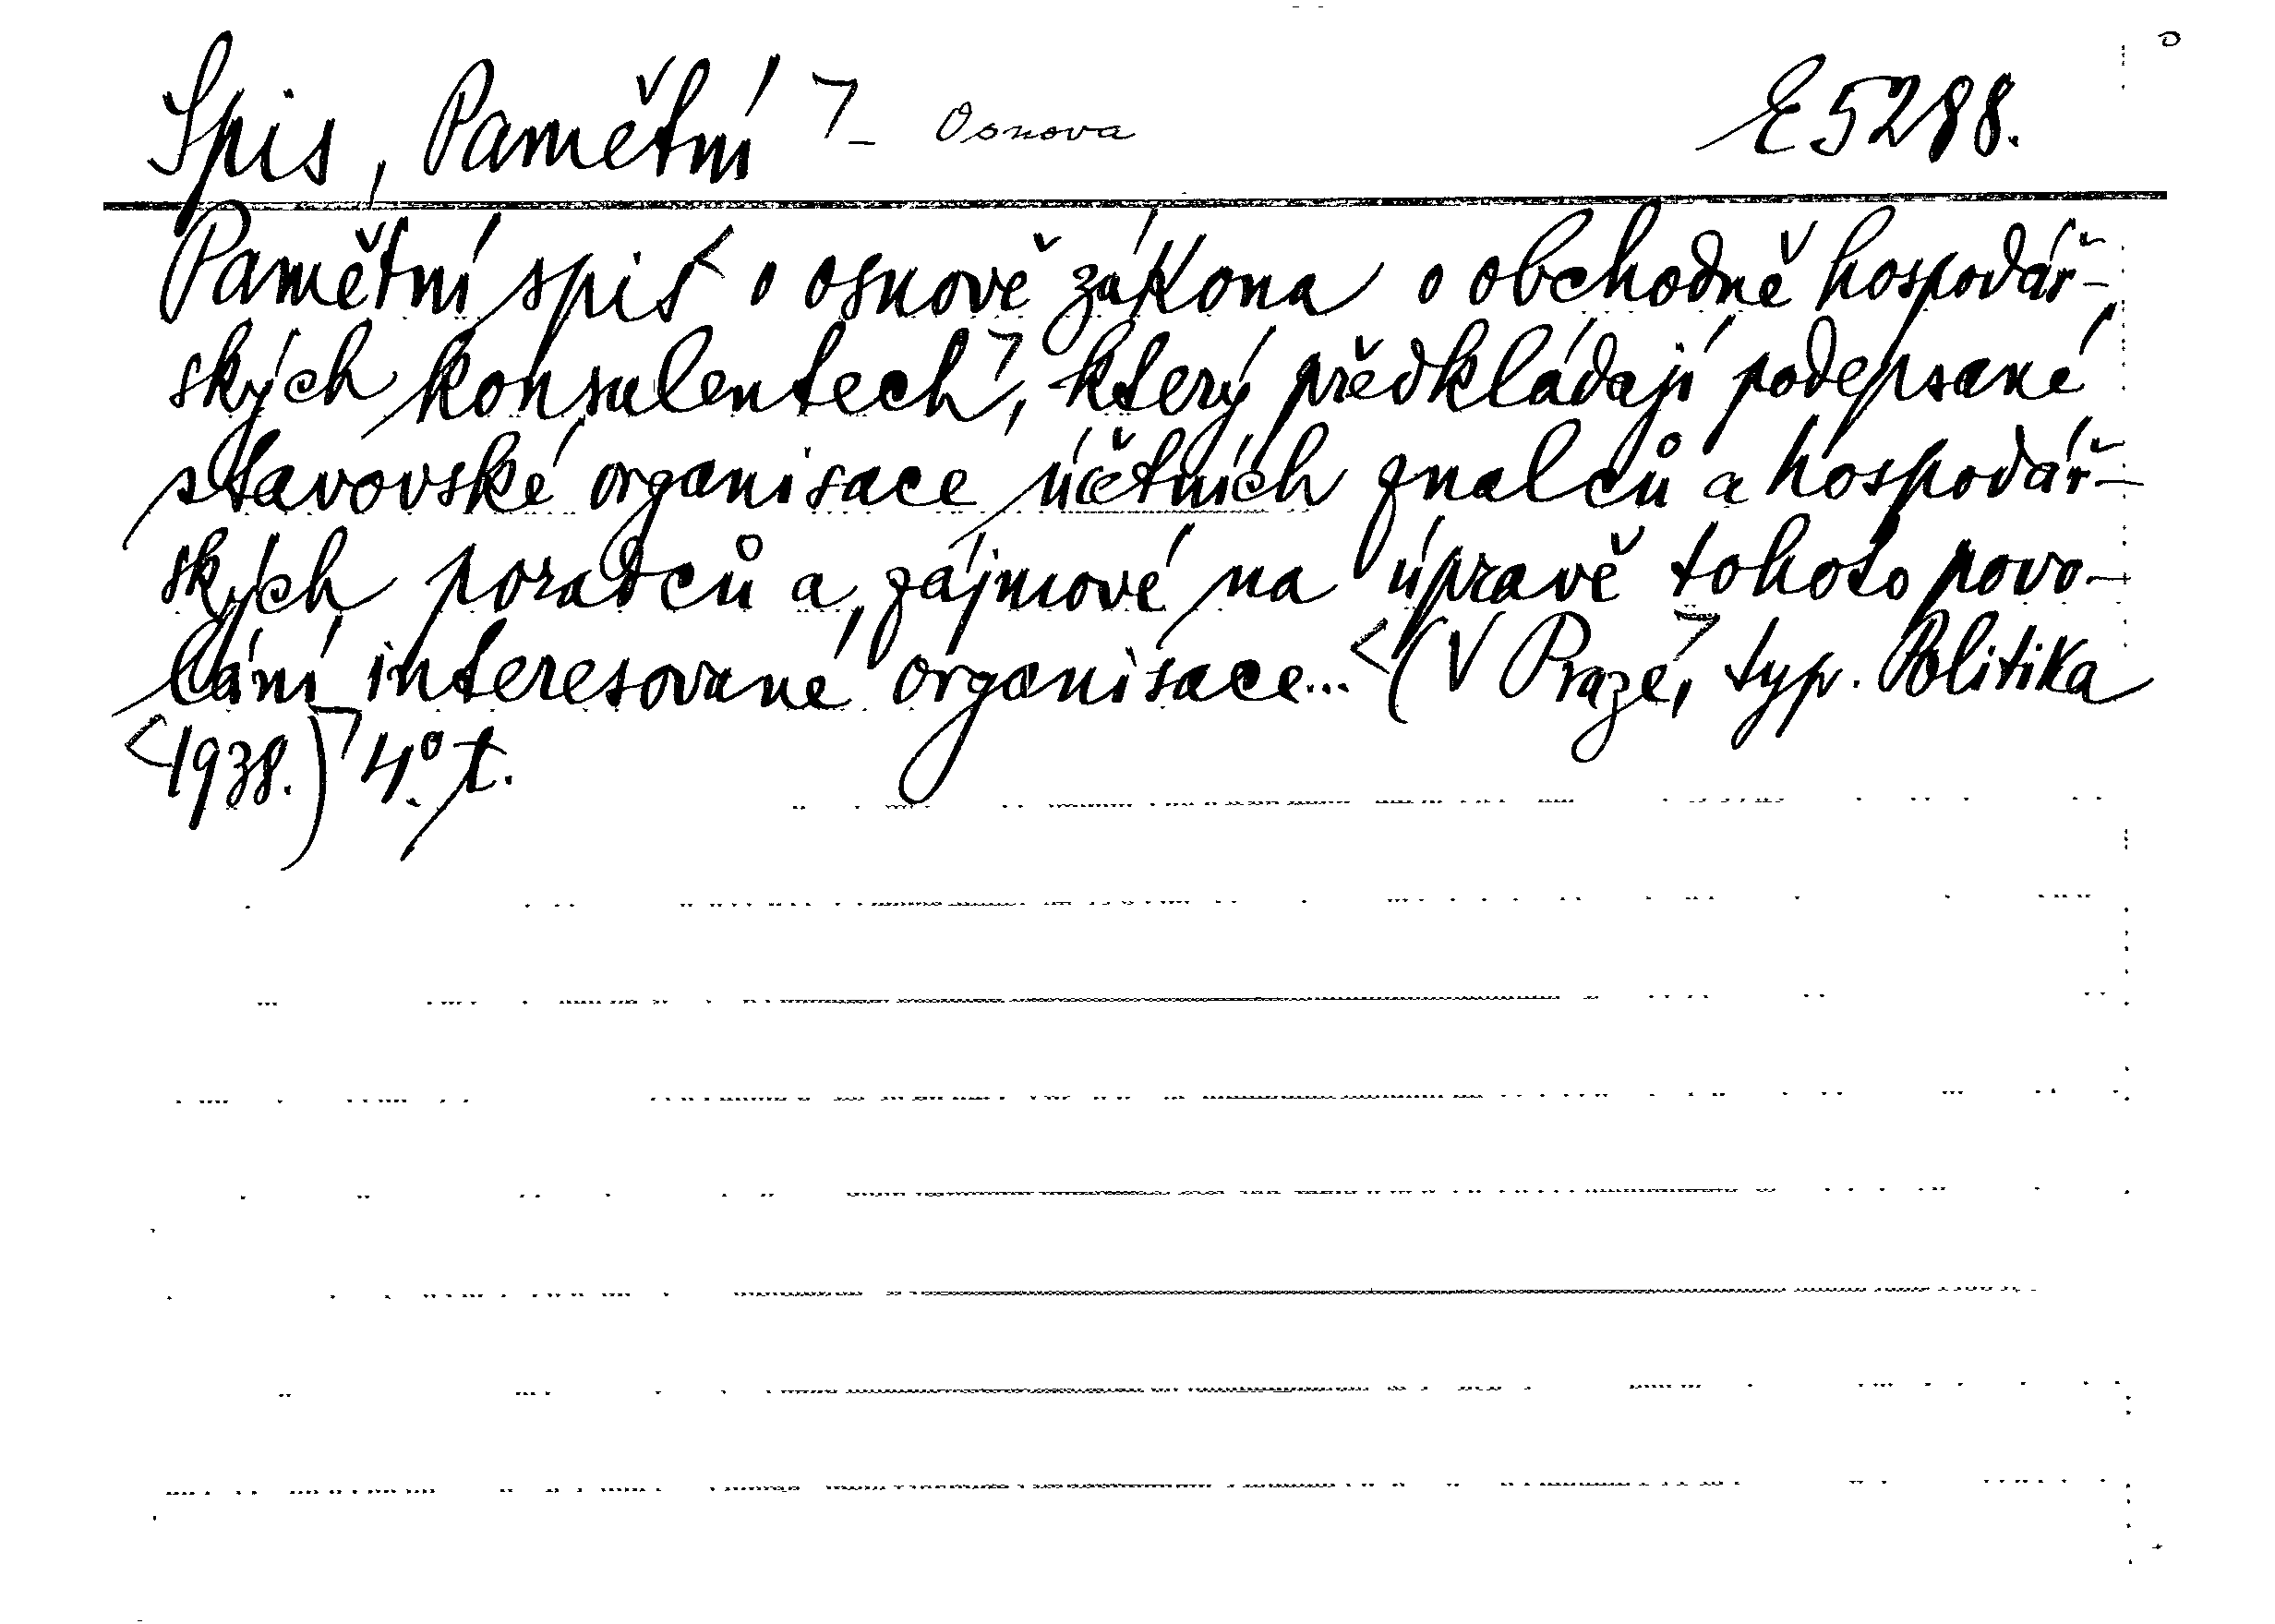 Spis, Pamětní ⌝ - Osnova E 5288.
Pamětní spis < o osnově zákona o obchodně hospodář-
ských konsulentech ⌝, který předkládají podepsané
stavovské organisace účetních znalců a hospodář-
ských poradců a, zájmové na úpravě tohoto povo-
lání interesované organisace... < (V Praze, ⌝ typ. Politika
< 1938.) ⌝ 4°. t.